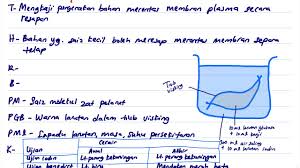 T- Mengkaji pergerakan bahan merentas membran plasma secara
resapan
H- Bahan yg. saiz kecil boleh meresap merentas membran separa
telap
R-
B-
PM- Saiz molekul zat pelarut
PGB- Warna larutan dlm tiub visking
PMR- Kepadatan larutan, masa, suhu persekitaran
Tiub
visking
10ml larutan glukosa
+ 10ml kanji
100 ml air suling
+ 10ml larutan iodin
K-
Cecair
Ujian
Awal
Akhir
Ujian iodin
Lt. perang kekuningan
Lt. perang kekuningan
Ujian benedict
Lt. biru